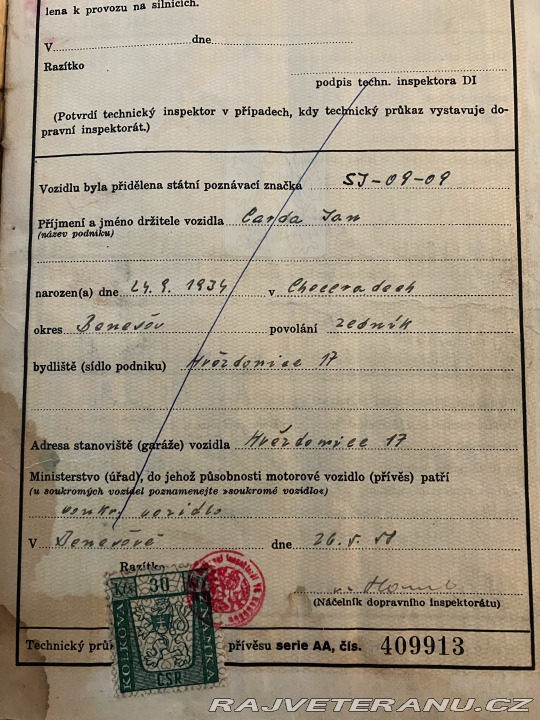 lena k provozu na silnicích.
V dne
Razítko
podpis techn. inspektora DI
(Potvrdí technický inspektor v případech, kdy technický průkaz vystavuje do-
pravní inspektorát.)
Vozidlu byla přidělena státní poznávací značka SJ-09-09
Příjmení a jméno držitele vozidla Carda Jan
(název podniku)
narozen(a) dne 24.9. 1934 v Choceradech
okres Benešov povolání zedník
bydliště (sídlo podniku) Hvězdonice 17
Adresa stanoviště (garáže) vozidla Hvězdonice 17
Ministerstvo (úřad), do jehož působnosti motorové vozidlo (přívěs) patří
(u soukromých vozidel poznamenejte »soukromé vozidlo«)
soukr. vozidlo
V Benešově dne 26.5.58
Razítko
(Náčelník dopravního inspektorátu)
Kčs 30
KOLKOVÁ ZNÁMKA
ČSR
Technický průk přívěsu serie AA, čís. 409913
RAJVETERANU.CZ